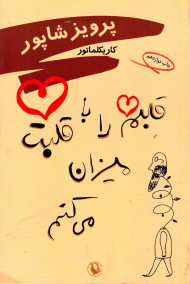 پرویز شاپور
کاریکلماتور
چاپ دوازدهم
قلبم را با قلبت
میزان
می‌کنم